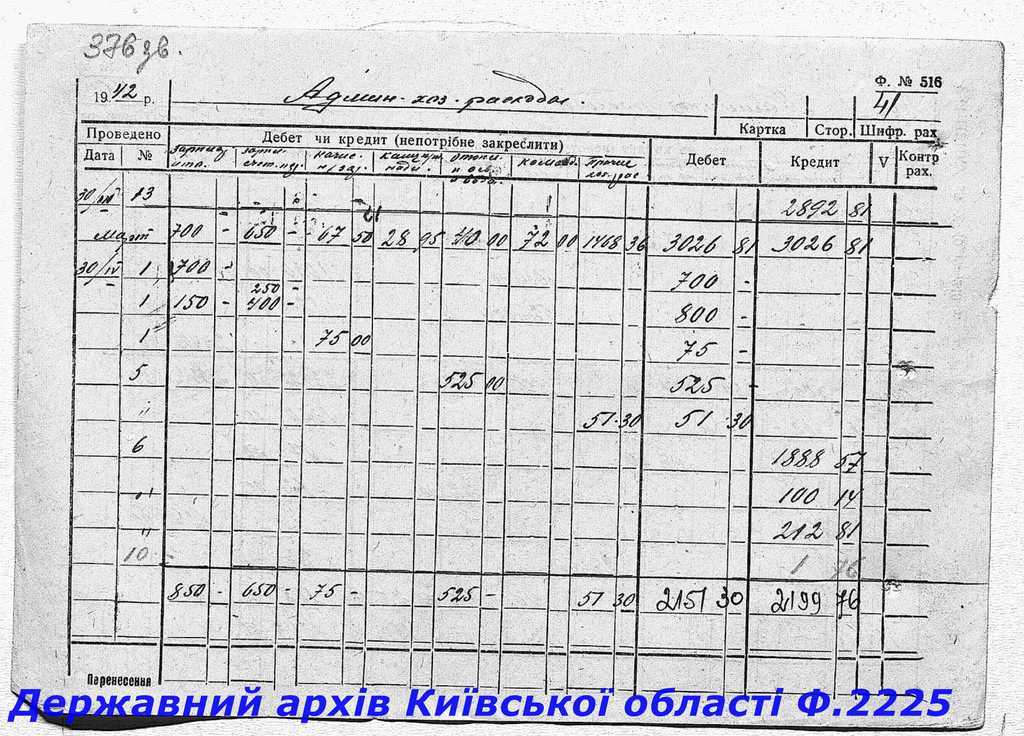 376 зв.
Ф. № 516
19 42 р. Админ-хоз. расходы. 41
Картка Стор. Шифр. рах.
Проведено Дебет чи кредит (непотрібне закреслити)
Дата № Дебет Кредит V Контр рах.
13 2892 81
Март 700 - 650 - 67 50 28 95 40 00 72 00 1468 36 3026 81 3026 81
30/IV 1 700 - 700 -
250 -
1 150 - 400 - 800 -
1 75 00 75 -
5 525 00 525 -
" 51 30 51 30
6 1888 57
" 100 14
" 212 81
10 1 76
850 - 650 - 75 - 525 - 51 30 2151 30 2199 76
Перенесення
Державний архів Київської області Ф.2225